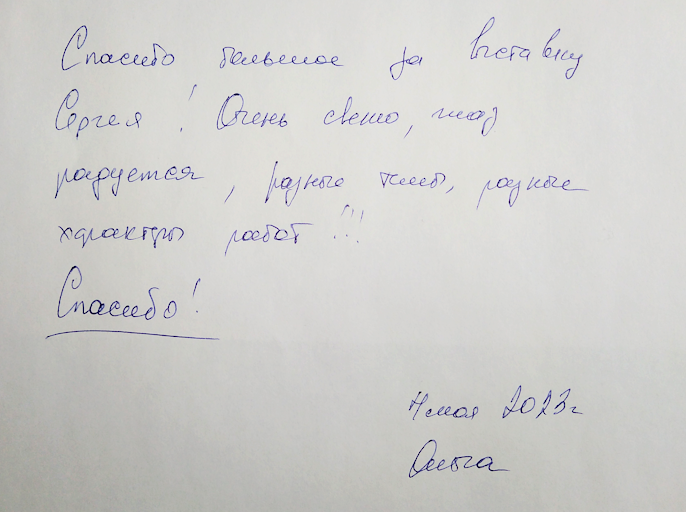 Спасибо большое за выставку
Сергея! Очень светло, глаз
радуется, разные темы, разные
характеры работ!!!
Спасибо!
4 мая 2023г
Ольга